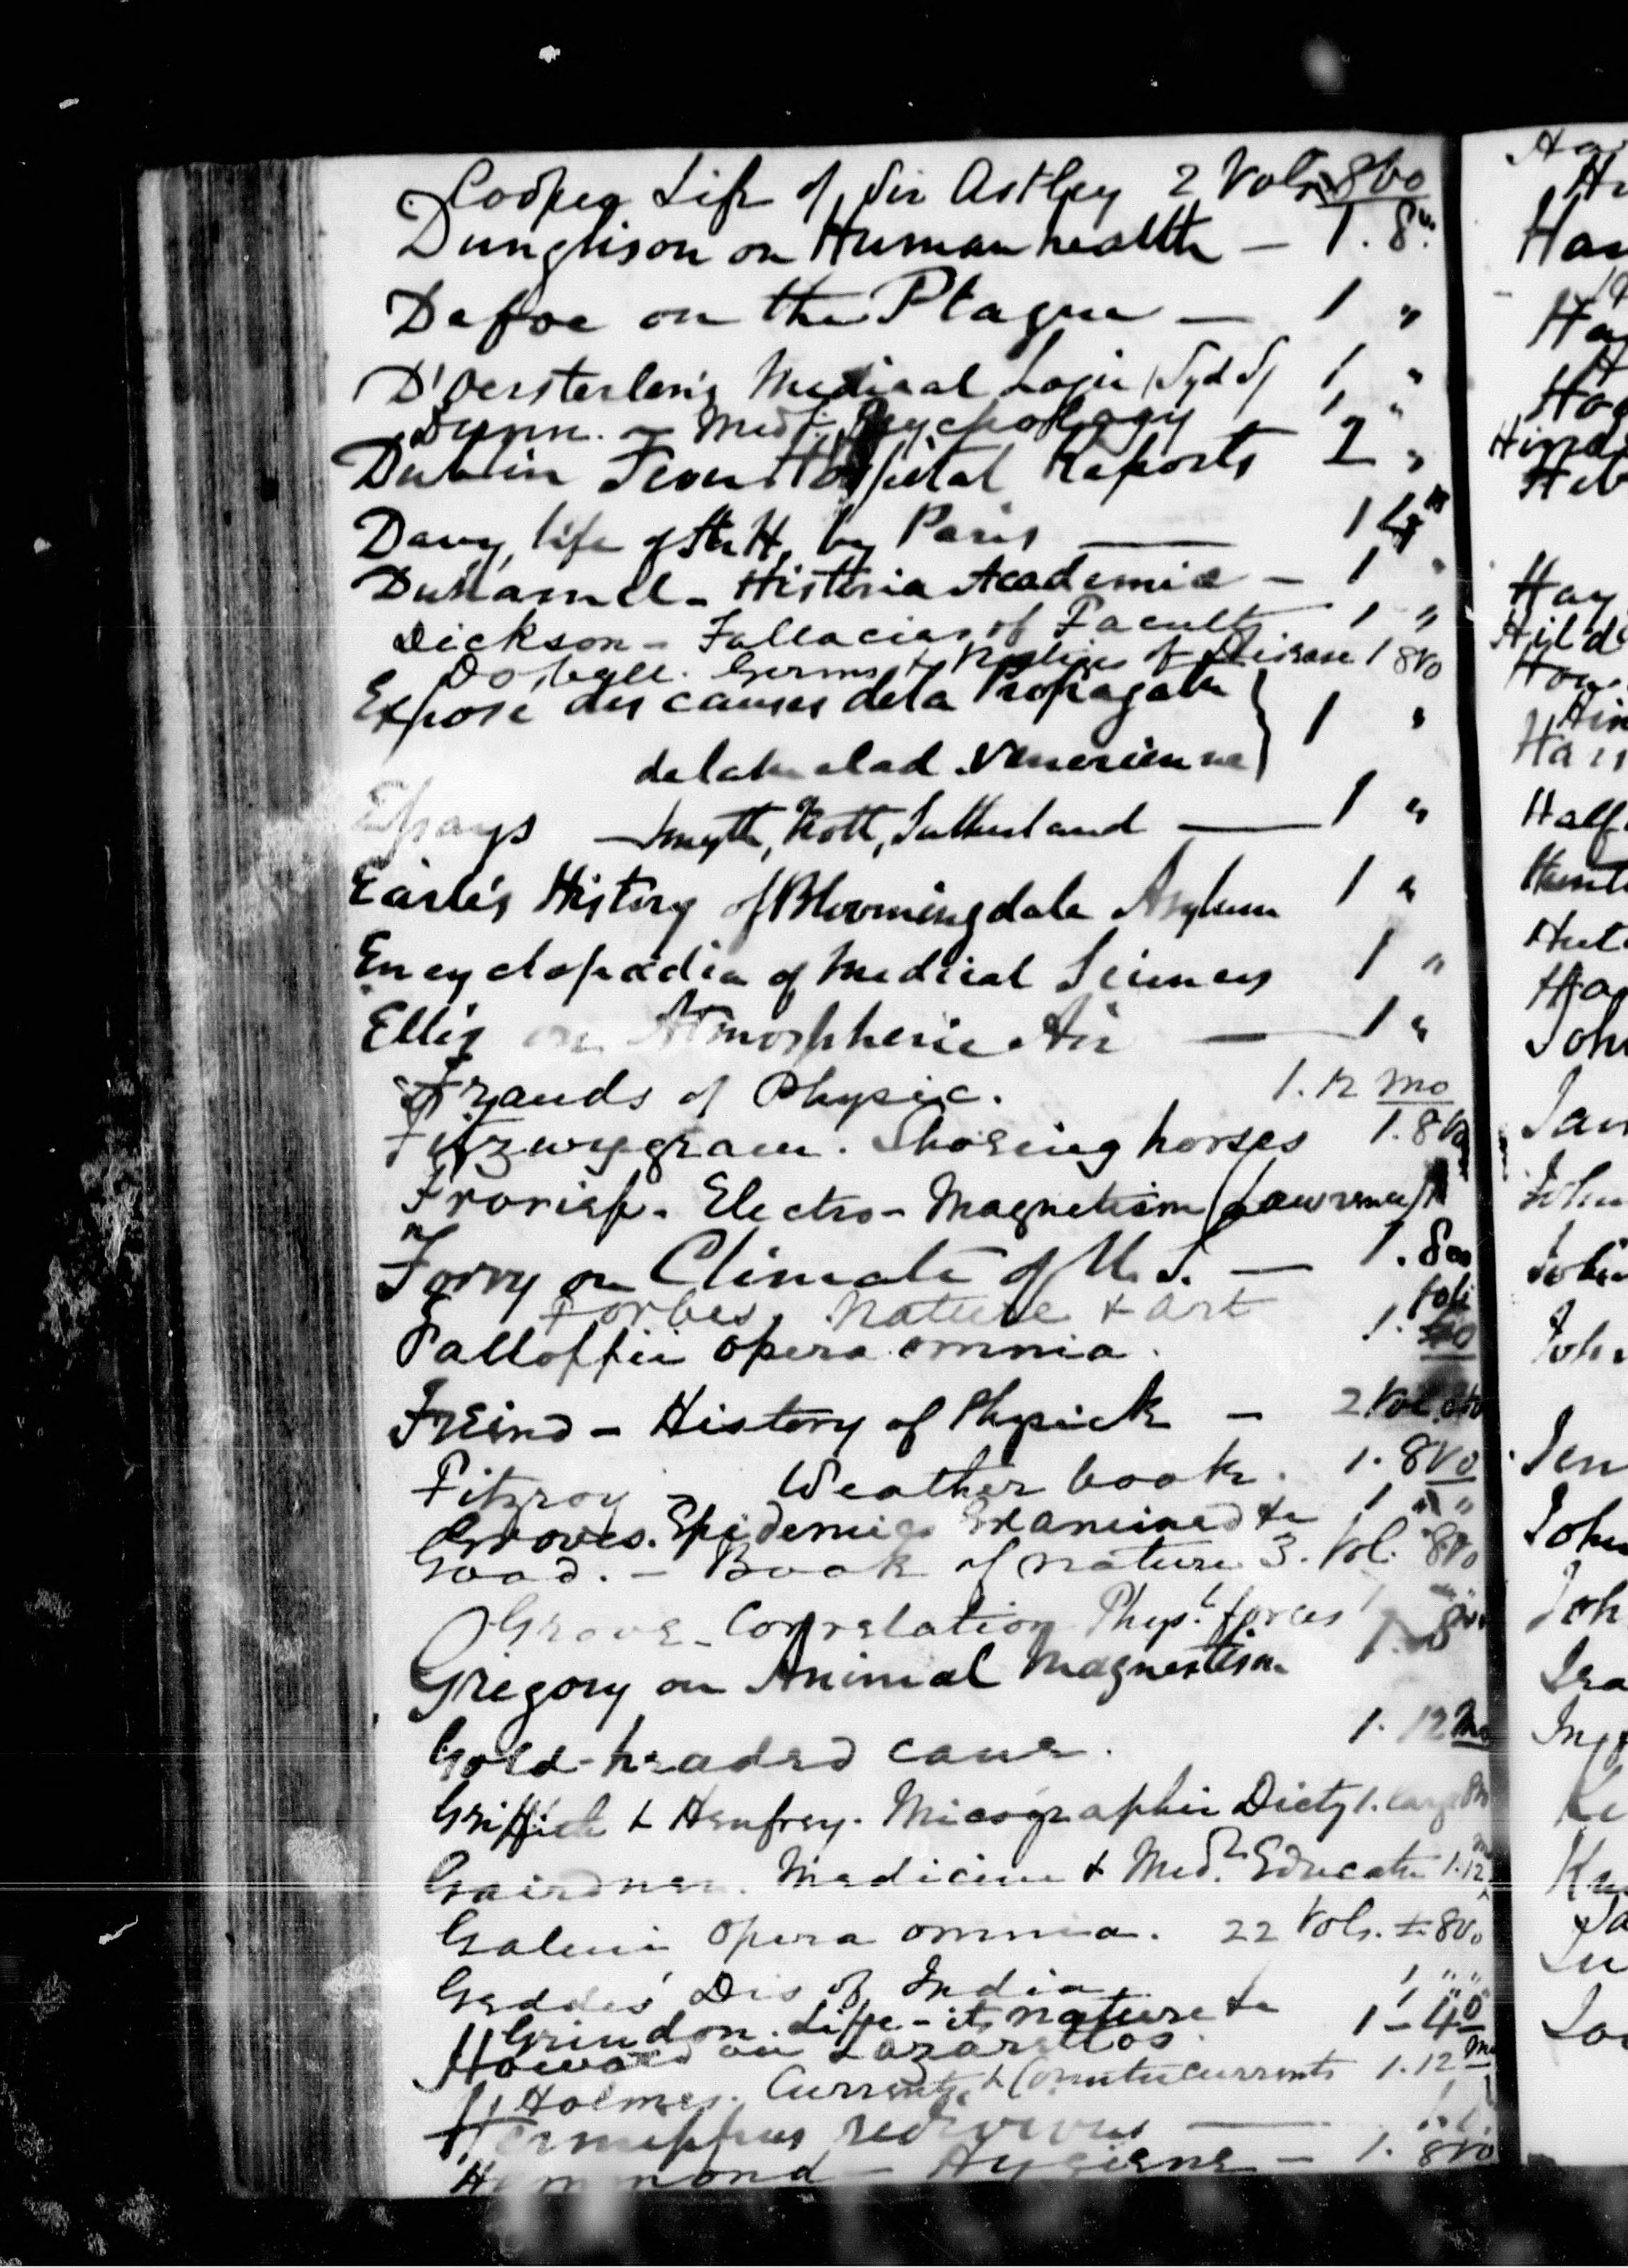 Cooper Life of Sir Astley 2 Vols 8vo
Dunglison on Human health — 1. 8vo
Defoe on the Plague — 1 "
D'Oersterlen's Medical Logic (Syd S) 1 "
Dunn. — Medl. Psychology 1 "
Dublin Fever Hospital Reports 2 "
Davy, life of Sir H. by Paris — 1 4to
Duhamel - Historia Academia — 1 "
Dickson - Fallacies of Faculty 1 "
Dobell. Germs & Vestiges of Disease 1 8vo
Expose des causes dela Propagatn
dela malad. Venerienne } 1 "
Essays — Smyth, Nott, Sutherland — 1 "
Earle's History of Bloomingdale Asylum 1 "
Encyclopædia of Medical Sciences 1 "
Ellis on Atmospheric Air — 1 "
Frauds of Physic. 1. 12 mo
Fitzwygram. Shoeing horses 1. 8vo
Froriep. Electro-Magnetism (Lawrence) 1
Forry on Climate of U. S. — 1. 8vo
Forbes, Nature & Art
Falloppii opera omnia. 1. foli
Freind - History of Physick — 2 Vol. 8vo
Fitzroy — Weather book. 1. 8vo
Groves. Epidemics Examined &c 1 " "
Good. — Book of nature 3. Vol. 8vo
Grove - Correlation Physl. forces 1
Gregory on Animal Magnetism 1. 8vo
Gold-headed cane. 1. 12mo
Griffith & Henfrey. Micographic Dicty 1. large 8vo
Gairdner. Medicine & Medl. Educatn 1. 12mo
Galeni opera omnia. 22 Vols. 8vo
Geddes' Dis of India 1 " "
Grindon. Life - its nature &c 1 "
Howard on Lazarettos 1 - 4o
Holmes. Currents & Countercurrents 1. 12 mo
Hermippus redivivus — 1.
Hammond — Hygiene — 1. 8vo
Han
Hay
Half
John